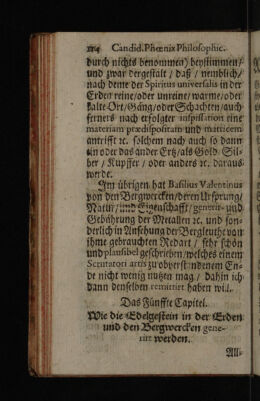 114 Candid. Phœnix Philosophic.
durch nichts benommen) bestimmen/
und zwar dergestalt / daß / nemblich/
nach deme der Spiritus universalis in der
Erden reine/oder unreine/ warme/ oder
kalte Ort/ Gäng/ oder Schachten/ auch
ferners nach erfolgter inspissation eine
materiam prædispositam und matricem
antrifft ꝛc. solchem nach auch so dann
ein oder das ander Ertz/ als Gold/ Sil-
ber / Kupffer / oder anders ꝛc. daraus
werde.
Im übrigen hat Basilius Valentinus
von den Bergwercken/ deren Ursprung/
Natur/ und Eigenschafft/ generir- und
Gebährung der Metallen ꝛc. und son-
derlich in Ansehung der Bergleuthe von
ihme gebrauchten Redart / sehr schön
und plausibel geschrieben/ welches einem
Scrutatori artis zu obverstandenem En-
de nicht wenig nutzen mag / dahin ich
dann denselben remittirt haben will.
Das Fünffte Capitel.
Wie die Edelgestein in der Erden
und den Bergwercken gene-
rirt werden.
All-